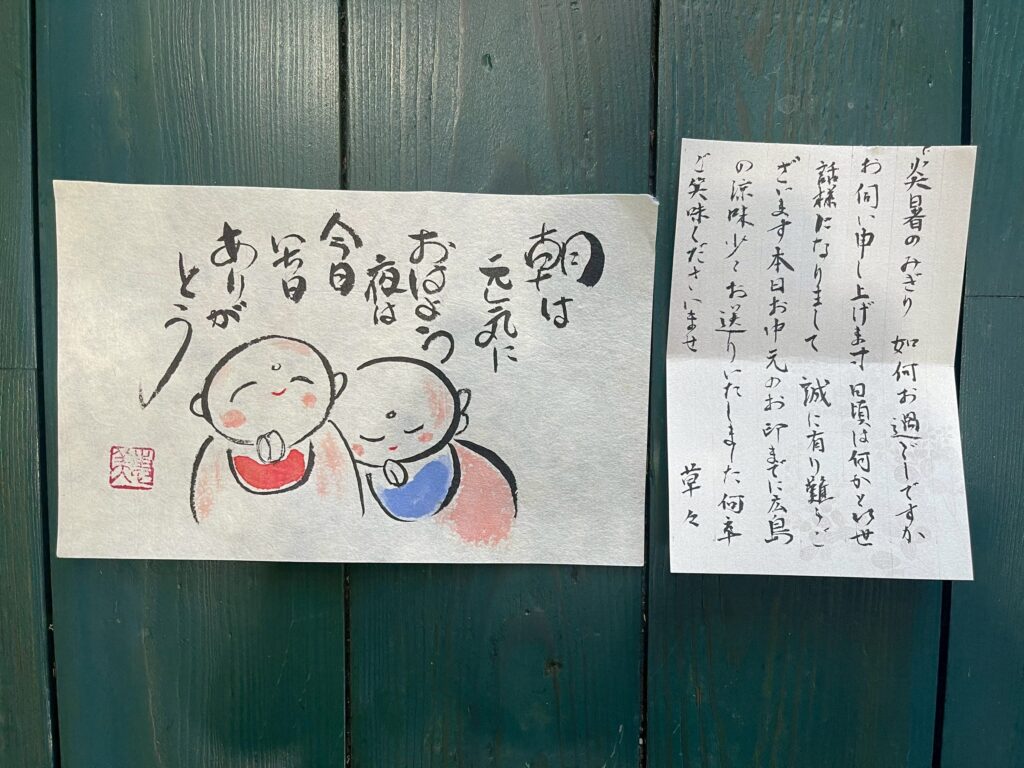 朝は
元気に
おはよう
夜は
今日
いち日
ありが
とう
炎暑のみぎり 如何お過ごしですか
お伺い申し上げます 日頃は何かとお世
話様になりまして 誠に有り難うご
ざいます 本日お中元のお印までに広島
の涼味少々お送りいたしました 何卒
ご笑味くださいませ
草々